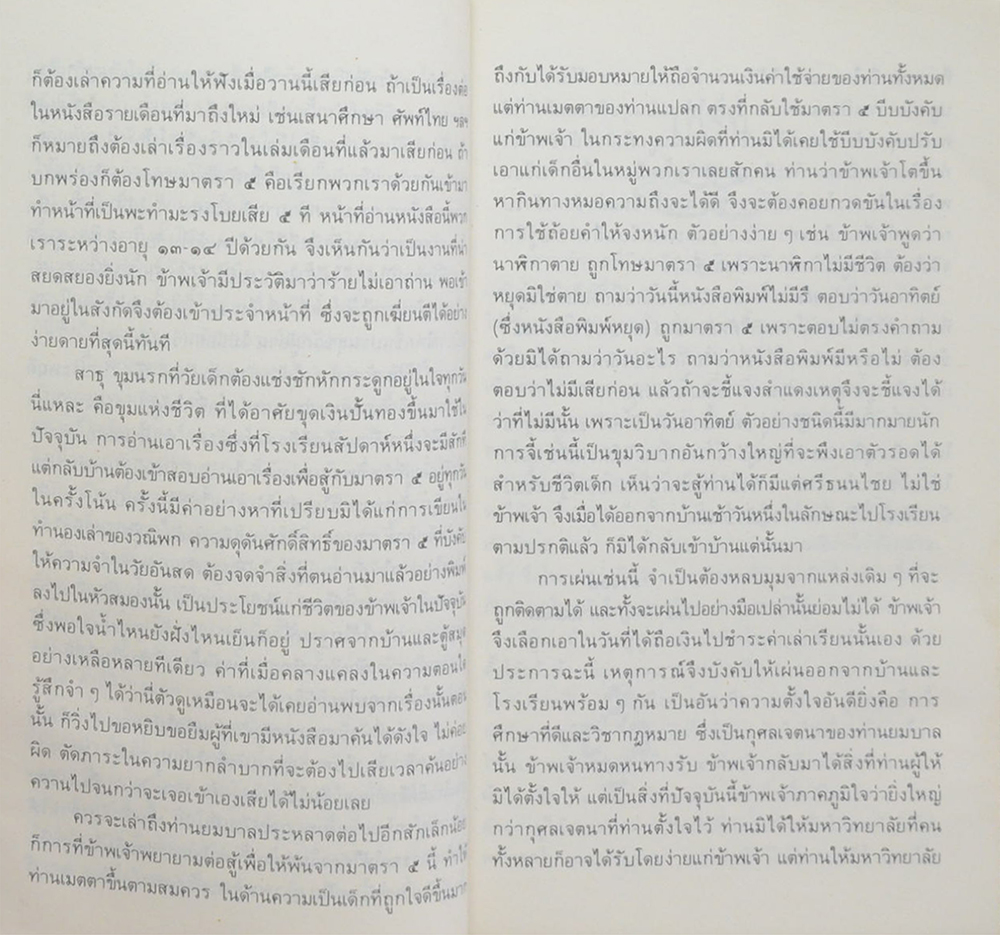 ก็ต้องเล่าความที่อ่านให้ฟังเมื่อวานนี้เสียก่อน ถ้าเป็นเรื่องต่อ
ในหนังสือรายเดือนที่มาถึงใหม่ เช่นเสนาศึกษา ศัพท์ไทย ฯลฯ
ก็หมายถึงต้องเล่าเรื่องราวในเล่มเดือนที่แล้วมาเสียก่อน ถ้า
บกพร่องก็ต้องโทษมาตรา ๕ คือเรียกพวกเราด้วยกันเข้ามา
ทำหน้าที่เป็นพะทำมะรงโบยเสีย ๕ ที หน้าที่อ่านหนังสือนี้พวก
เราระหว่างอายุ ๑๓-๑๔ ปีด้วยกัน จึงเห็นกันว่าเป็นงานที่น่า
สยดสยองยิ่งนัก ข้าพเจ้ามีประวัติมาว่าร้ายไม่เอาถ่าน พอเข้า
มาอยู่ในสังกัดจึงต้องเข้าประจำหน้าที่ ซึ่งจะถูกเฆี่ยนตีได้อย่าง
ง่ายดายที่สุดนี้ทันที
สาธุ ขุมนรกที่วัยเด็กต้องแช่งชักหักกระดูกอยู่ในใจทุกวัน
นี่แหละ คือขุมแห่งชีวิต ที่ได้อาศัยขุดเงินปั้นทองขึ้นมาใช้ใน
ปัจจุบัน การอ่านเอาเรื่องซึ่งที่โรงเรียนสัปดาห์หนึ่งจะมีสักที
แต่กลับบ้านต้องเข้าสอบอ่านเอาเรื่องเพื่อสู้กับมาตรา ๕ อยู่ทุกวัน
ในครั้งโน้น ครั้งนี้มีค่าอย่างหาที่เปรียบมิได้แก่การเขียนใน
ทำนองเล่าของวณิพก ความดุดันศักดิ์สิทธิ์ของมาตรา ๕ ที่บังคับ
ให้ความจำในวัยอันสด ต้องจดจำสิ่งที่ตนอ่านมาแล้วอย่างพิมพ์
ลงไปในหัวสมองนั้น เป็นประโยชน์แก่ชีวิตของข้าพเจ้าในปัจจุบัน
ซึ่งพอใจน้ำไหนยังฝั่งไหนเย็นก็อยู่ ปราศจากบ้านและตู้สมุด
อย่างเหลือหลายทีเดียว ค่าที่เมื่อคลางแคลงในความตอนใด
รู้สึกจำ ๆ ได้ว่านี่ตัวดูเหมือนจะได้เคยอ่านพบจากเรื่องนั้นตอน
นั้น ก็วิ่งไปขอหยิบขอยืมผู้ที่เขามีหนังสือมาค้นได้ดังใจ ไม่ค่อย
ผิด ตัดภาระในความยากลำบากที่จะต้องไปเสียเวลาค้นอย่าง
ควานไปจนกว่าจะเจอเข้าเองเสียได้ไม่น้อยเลย
ควรจะเล่าถึงท่านยมบาลประหลาดต่อไปอีกสักเล็กน้อย
ก็การที่ข้าพเจ้าพยายามต่อสู้เพื่อให้พ้นจากมาตรา ๕ นี้ ทำให้
ท่านเมตตาขึ้นตามสมควร ในด้านความเป็นเด็กที่ถูกใจดีขึ้นมาก
ถึงกับได้รับมอบหมายให้ถือจำนวนเงินค่าใช้จ่ายของท่านทั้งหมด
แต่ท่านเมตตาของท่านแปลก ตรงที่กลับใช้มาตรา ๕ บีบบังคับ
แก่ข้าพเจ้า ในกระทงความผิดที่ท่านมิได้เคยใช้บีบบังคับปรับ
เอาแก่เด็กอื่นในหมู่พวกเราเลยสักคน ท่านว่าข้าพเจ้าโตขึ้น
หากินทางหมอความถึงจะได้ดี จึงจะต้องคอยกวดขันในเรื่อง
การใช้ถ้อยคำให้จงหนัก ตัวอย่างง่าย ๆ เช่น ข้าพเจ้าพูดว่า
นาฬิกาตาย ถูกโทษมาตรา ๕ เพราะนาฬิกาไม่มีชีวิต ต้องว่า
หยุดมิใช่ตาย ถามว่าวันนี้หนังสือพิมพ์ไม่มีรึ ตอบว่าวันอาทิตย์
(ซึ่งหนังสือพิมพ์หยุด) ถูกมาตรา ๕ เพราะตอบไม่ตรงคำถาม
ด้วยมิได้ถามว่าวันอะไร ถามว่าหนังสือพิมพ์มีหรือไม่ ต้อง
ตอบว่าไม่มีเสียก่อน แล้วถ้าจะชี้แจงสำแดงเหตุจึงจะชี้แจงได้
ว่าที่ไม่มีนั้น เพราะเป็นวันอาทิตย์ ตัวอย่างชนิดนี้มีมากมายนัก
การจี้เช่นนี้เป็นขุมวิบากอันกว้างใหญ่ที่จะพึงเอาตัวรอดได้
สำหรับชีวิตเด็ก เห็นว่าจะสู้ท่านได้ก็มีแต่ศรีธนนไชย ไม่ใช่
ข้าพเจ้า จึงเมื่อได้ออกจากบ้านเช้าวันหนึ่งในลักษณะไปโรงเรียน
ตามปรกติแล้ว ก็มิได้กลับเข้าบ้านแต่นั้นมา
การเผ่นเช่นนี้ จำเป็นต้องหลบมุมจากแหล่งเดิม ๆ ที่จะ
ถูกติดตามได้ และทั้งจะเผ่นไปอย่างมือเปล่านั้นย่อมไม่ได้ ข้าพเจ้า
จึงเลือกเอาในวันที่ได้ถือเงินไปชำระค่าเล่าเรียนนั้นเอง ด้วย
ประการฉะนี้ เหตุการณ์จึงบังคับให้เผ่นออกจากบ้านและ
โรงเรียนพร้อม ๆ กัน เป็นอันว่าความตั้งใจอันดียิ่งคือ การ
ศึกษาที่ดีและวิชากฎหมาย ซึ่งเป็นกุศลเจตนาของท่านยมบาล
นั้น ข้าพเจ้าหมดหนทางรับ ข้าพเจ้ากลับมาได้สิ่งที่ท่านผู้ให้
มิได้ตั้งใจให้ แต่เป็นสิ่งที่ปัจจุบันนี้ข้าพเจ้าภาคภูมิใจว่ายิ่งใหญ่
กว่ากุศลเจตนาที่ท่านตั้งใจไว้ ท่านมิได้ให้มหาวิทยาลัยที่คน
ทั้งหลายก็อาจได้รับโดยง่ายแก่ข้าพเจ้า แต่ท่านให้มหาวิทยาลัย